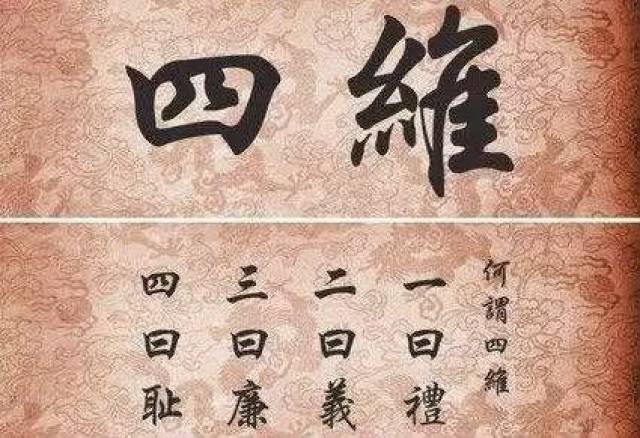 四維
何謂四維
一曰禮
二曰義
三曰廉
四曰耻